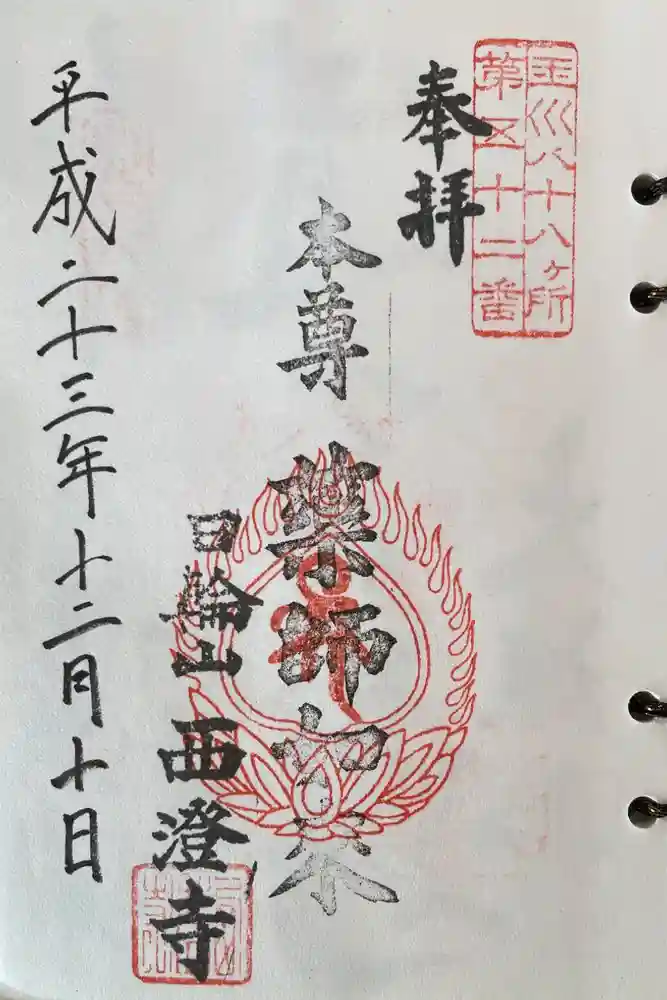 玉川八十八ヶ所
第五十二番
奉拝
本尊
薬師如来
日輪山
西澄寺
平成二十三年十二月十日